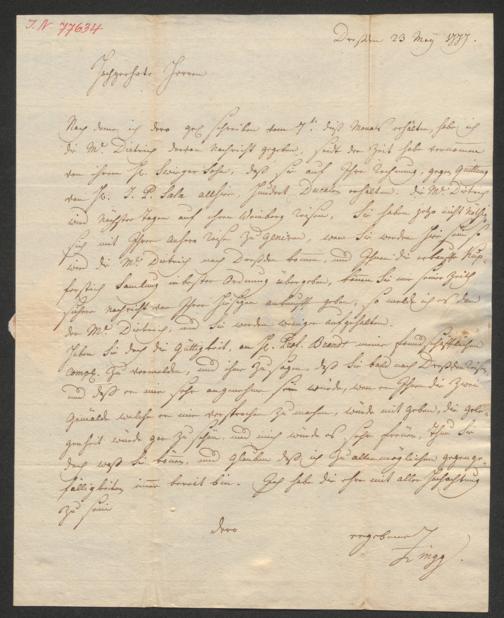 I. N. 77634
Dresden 23 May 1777.
Hochgeehrte Herren
Nach deme ich dero schreiben vom 7t. dieß Monats erhalten, habe ich
die Md. Dietrich davon Nachricht gegeben, seit der Zeit habe vernommen
von ihrem H. Schwieger Sohn, daß sie auf Ihre Rechnung, gegen Quittung
von H. I. P. Sala allhier, hundert Ducaten erhalten. die Md. Dietrich
wird nächster Tagen auf ihren Weinberg Reisen, Sie haben jetzo nicht nöthig
sich mit Ihrer anhero Reise zu, wann Sie werden
wird die Md. Dietrich nach Dresden kommen, und Ihnen die erkauffte Kup-
ferstich Samlung in bester Ordnung übergeben, können Sie mir seiner Zeit
Nachricht von Ihrer ankunfft geben, so melde ich es dan
der Md. Dietrich, und Sie werden weniger aufgehalten.
Haben Sie doch die Güttigkeit, an H. Prof. Brandt meine freundschafftlichen
Compl. zu vermelden, und ihme zu sagen, daß Sie bald nach Dresden
und daß es mir sehr angenehm sein würde, wen er Ihnen die zwei
Gemälde welche er mir versprochen zu machen, würde mit geben, die gele-
genheit würde gar zu schön, und mich würde es sehr freuen, thun Sie
doch waß Sie können, und glauben daß ich zu allen möglichen gegenge-
fälligkeiten immer bereit bin. Ich habe die ehre mit aller Hochachtung
zu sein
dero
ergebener
Zingg.